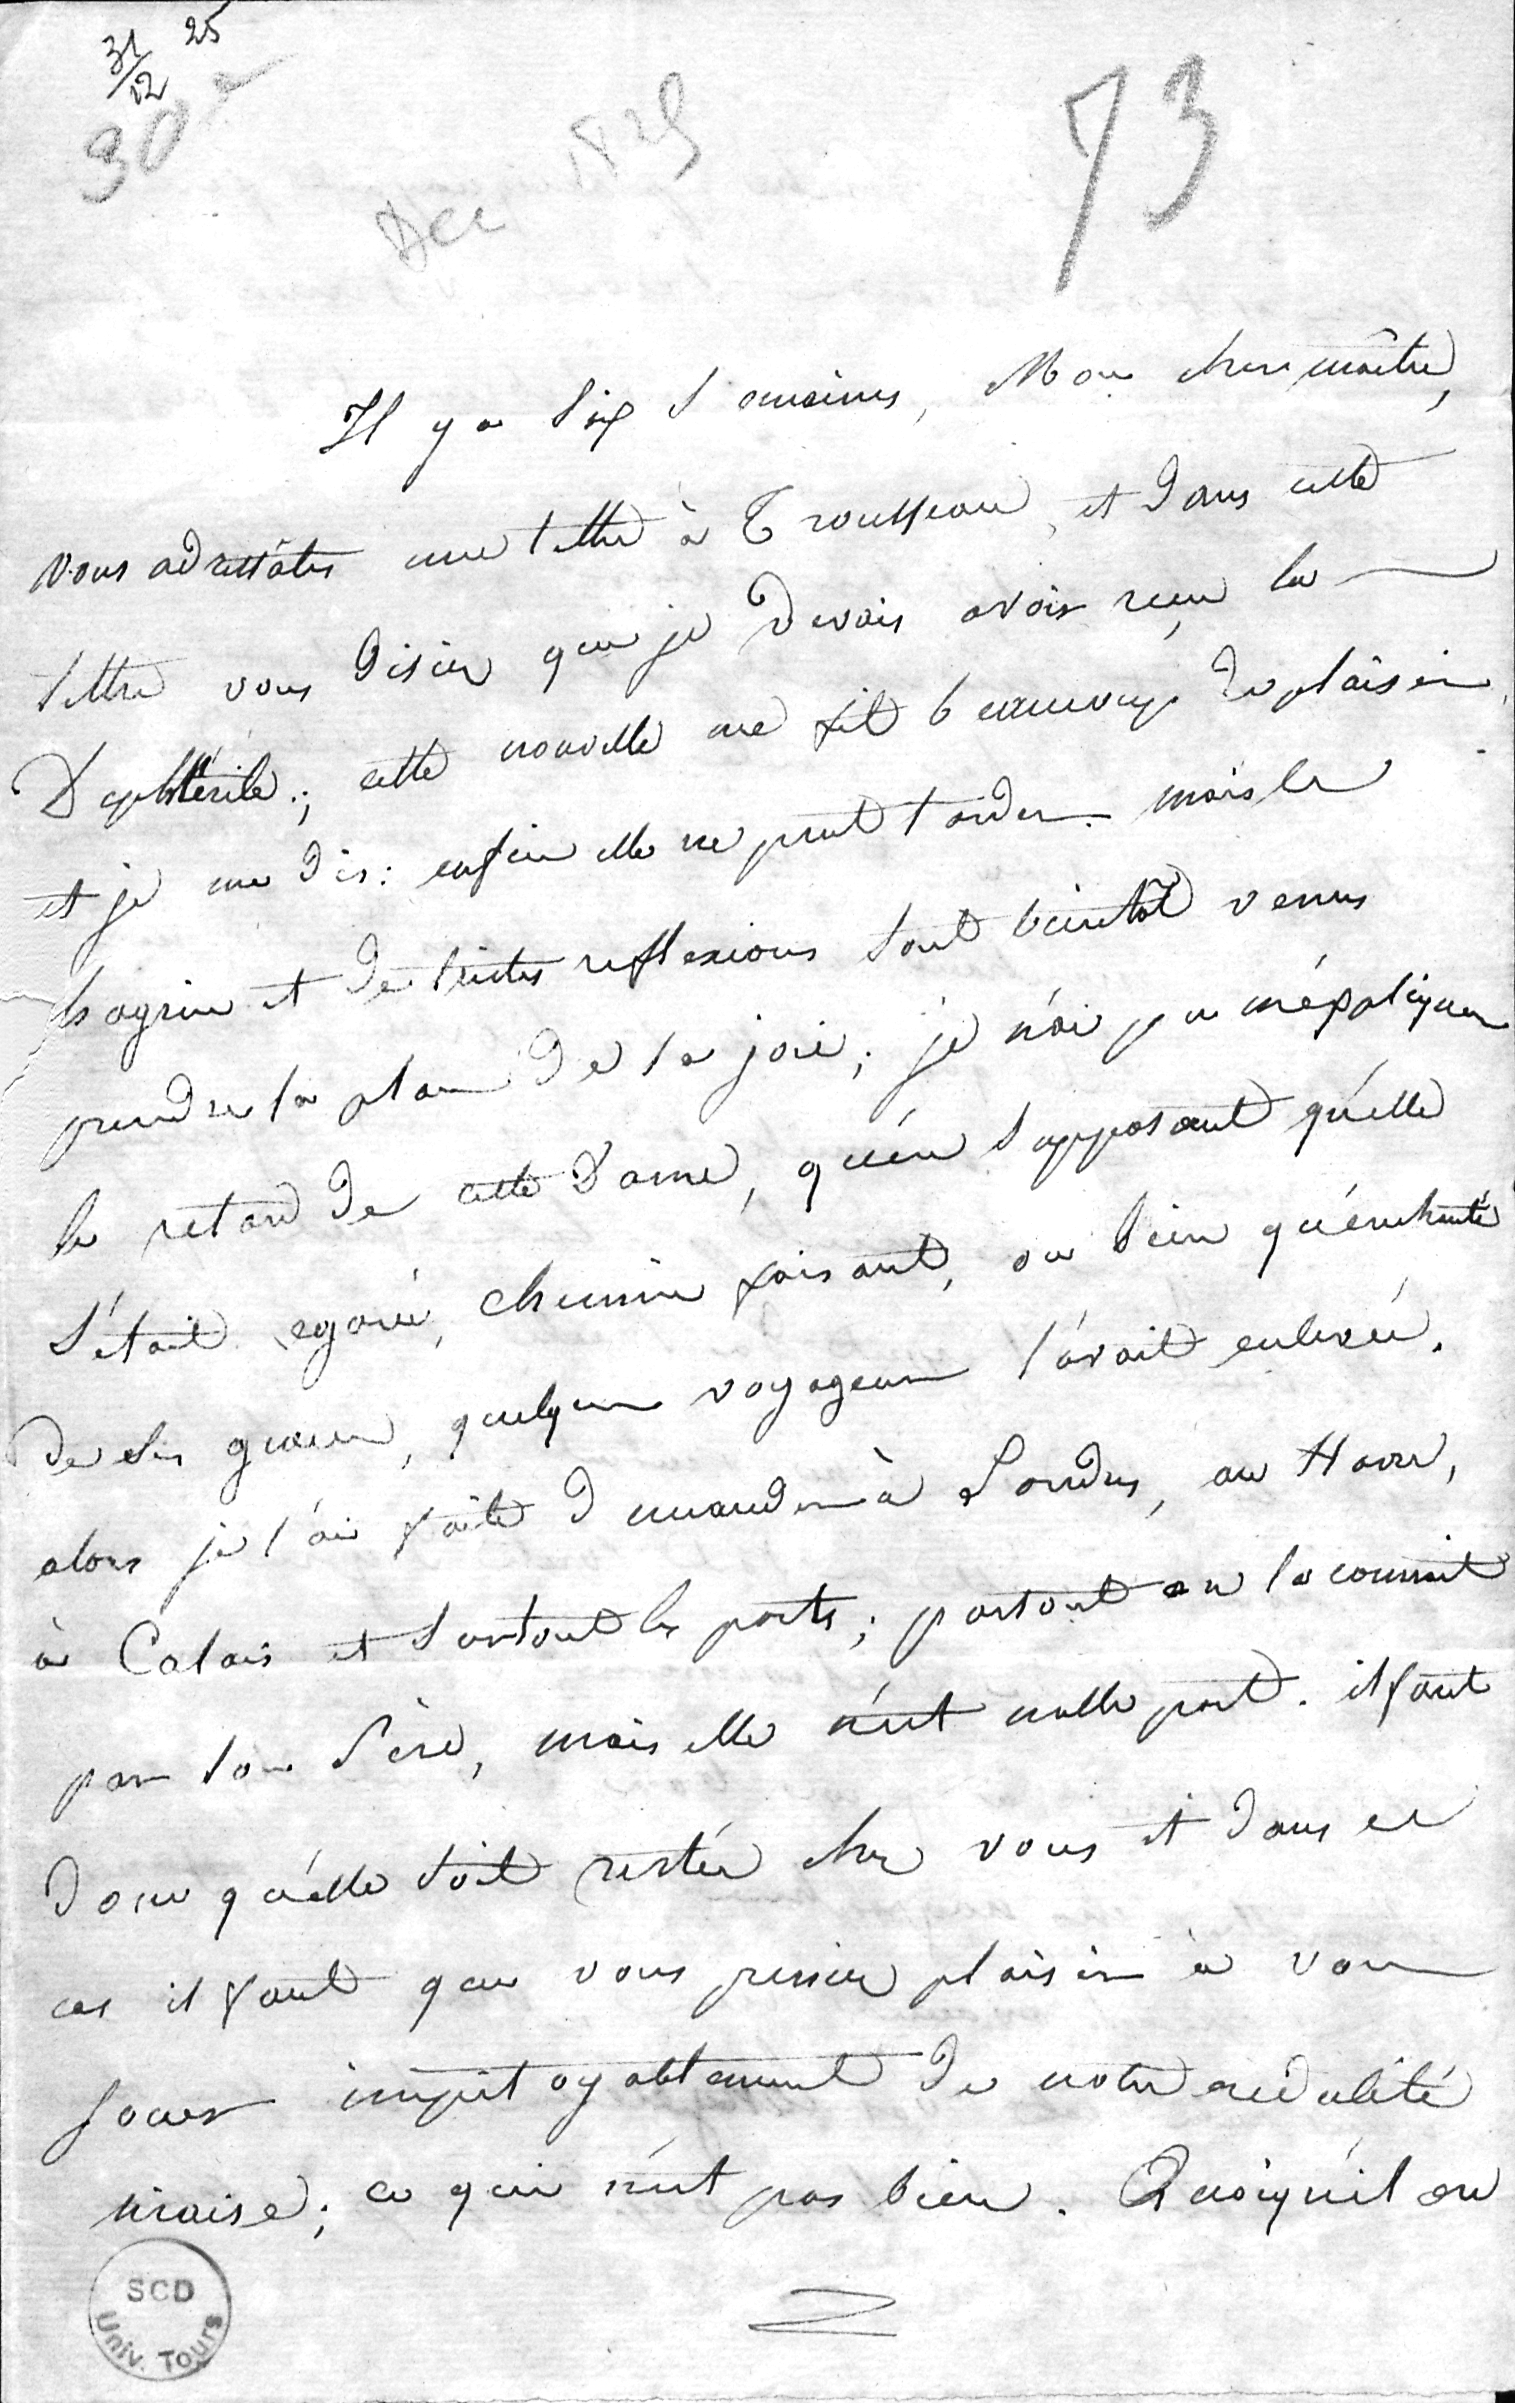 31/12 25
30
Dec 1825
73
Il y a Six Semaines, Mon cher maître,
vous adressâtes une lettre à Trousseau, et dans cette
lettre vous disiez que je devais avoir reçu la
Diphtérite; cette nouvelle me fit beaucoup de plaisir,
et je me dis: enfin elle ne peut tarder. mais le
chagrin et de tristes reflexions sont bientôt venus
prendre la place de la joie; je n'ai pu m'expliquer
le retard de cette Dame, qu'en Supposant qu'elle
S'était egarée, chemin faisant, ou bien qu'enchanté
de Ses graces, quelque voyageur l'avait enlevée.
alors je l'ai faite demander à Londres, au Havre,
à Calais et surtout les ports; partout on la connait
par son Père, mais elle n'est nulle part. il faut
donc qu'elle soit restée chez vous et dans ce
cas il faut que vous preniez plaisir à vous
jouer impitoyablement de notre crédulité
niaise; ce qui n'est pas bien. Quoiqu'il en
SCD
Univ. Tours